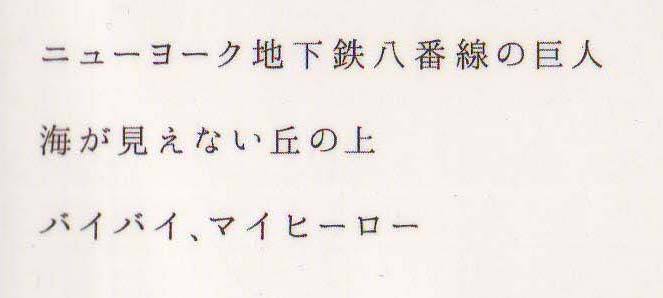 ニューヨーク地下鉄八番線の巨人
海が見えない丘の上
バイバイ、マイヒーロー